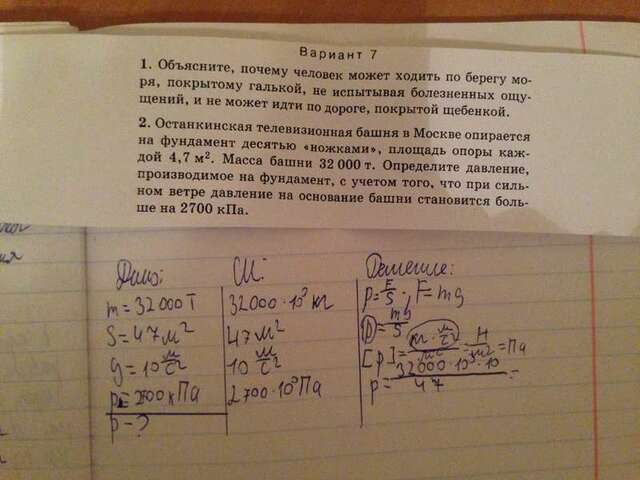 Вариант 7
1. Объясните, почему человек может ходить по берегу мо-
ря, покрытому галькой, не испытывая болезненных ощу-
щений, и не может идти по дороге, покрытой щебенкой.
2. Останкинская телевизионная башня в Москве опирается
на фундамент десятью «ножками», площадь опоры каж-
дой 4,7 м². Масса башни 32 000 т. Определите давление,
производимое на фундамент, с учетом того, что при силь-
ном ветре давление на основание башни становится боль-
ше на 2700 кПа.
Дано:
m = 32 000 т
S = 47 м²
g = 10 м/с²
p - ?
СИ:
32000 · 10³ кг
47 м²
10 м/с²
2700 · 10³ Па
Решение:
p = F/S ; F = mg
p = mg/S
p = 32000 · 10³ · 10 / 47